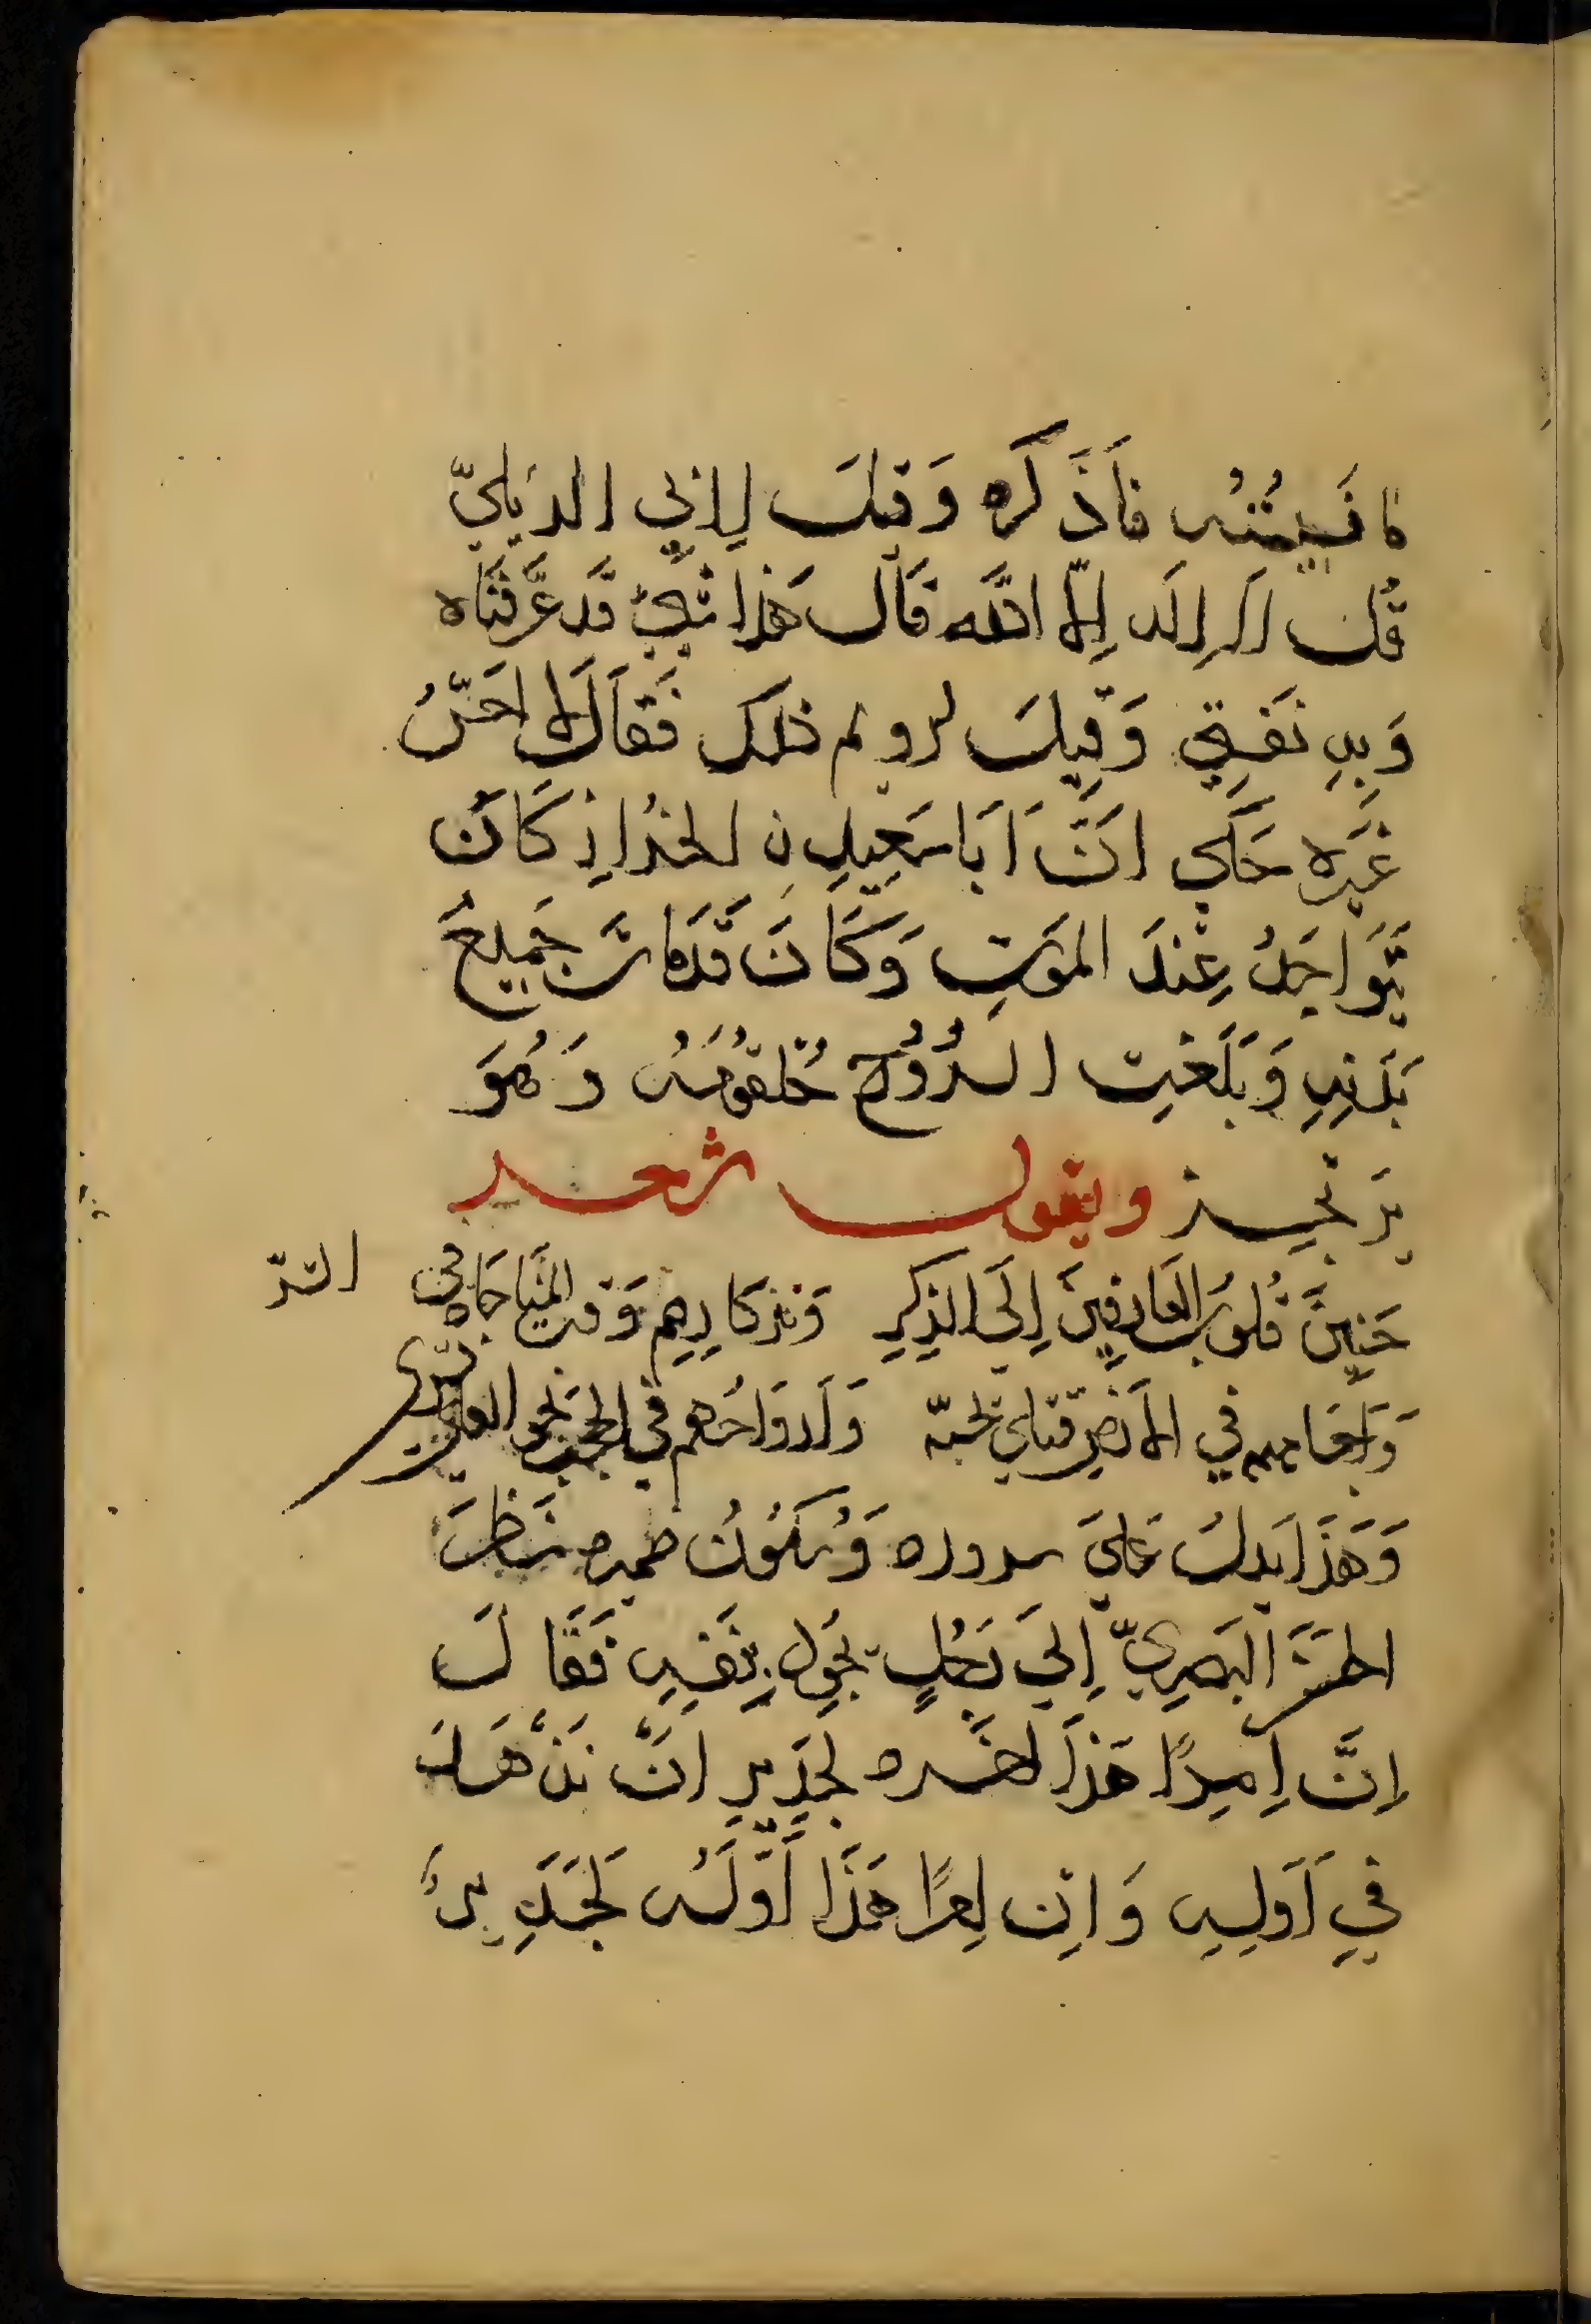 ما نسيته فأذكره وقيل لابي الديليّ
قل لا اله الا الله قال هذا شيء قد عرفناه
وبه نفني وقيل لرويم ذلك فقال لا احسن
غيره حكي ان ابا سعيد ن الخزاز كان
يتواجد عند الموت وكان قد مات جميع
بدنه وبلغت الروح حلقومه وهو
يرتجز ويقول شعر
حنين قلوب العارفين الى الذكر وتذكارهم وقت المناجاة في السرّ
واجسامهم في الارض قتلى بحبه وارواحهم في الحجب نحو العلى تسري
وهذا يدل على سروره وسكون ضميره نظر
الحسن البصري الى رجل يجود بنفسه فقال
ان امرا هذا اخره لجدير ان يزهد
في اوله وان امرا هذا اوله لجدير